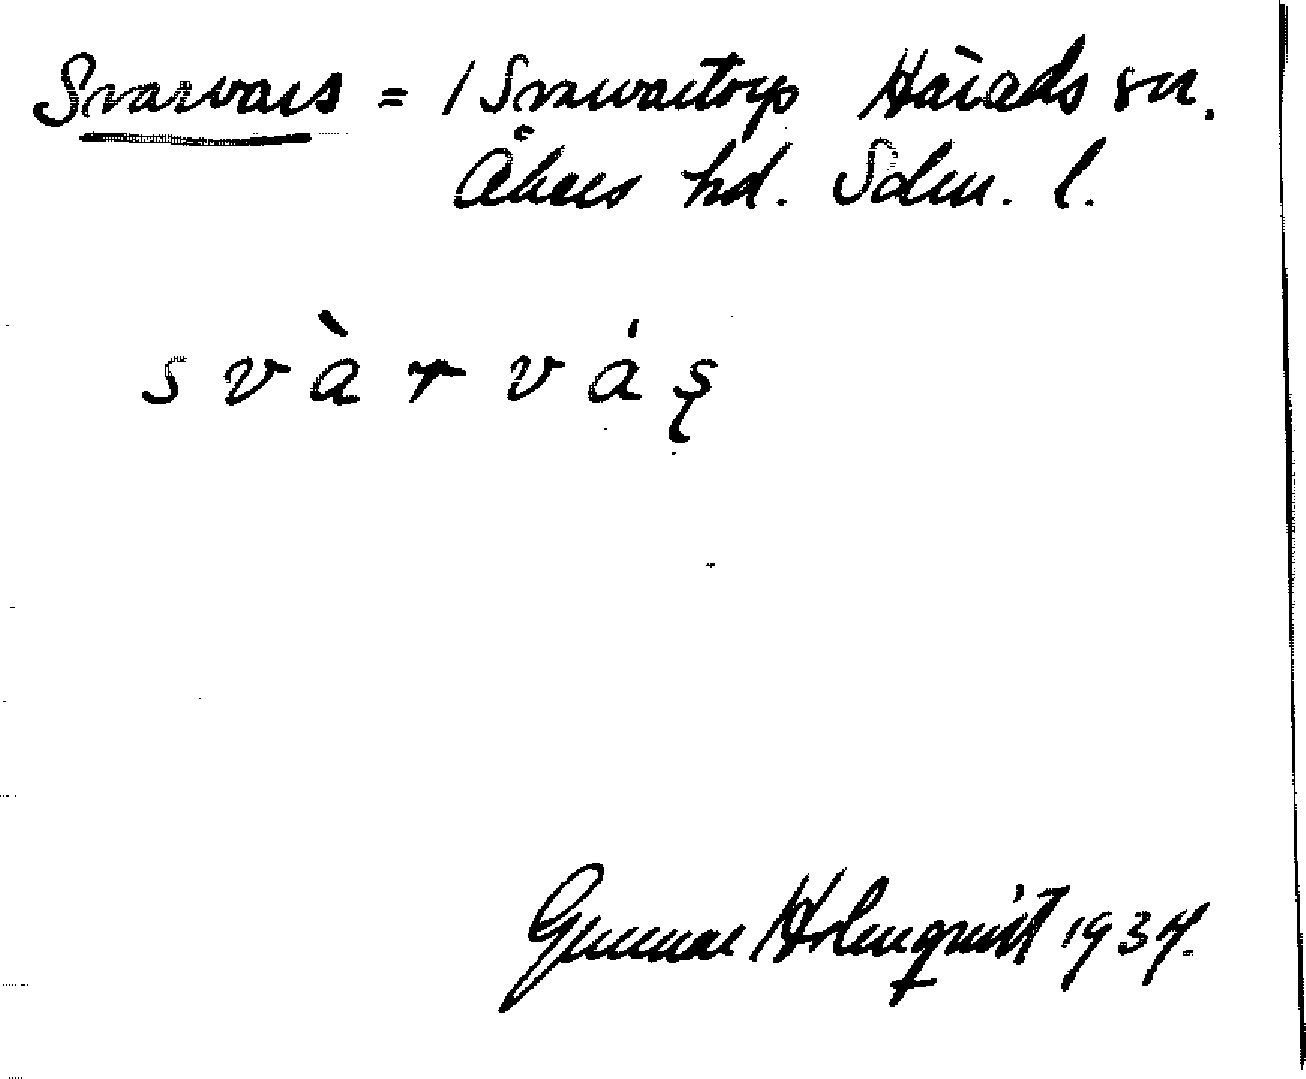 Svarvars = / Svarvartorp Härads sn.
Åkers hd. Sdm. l.
s v à r v á ş
Gunnar Holmquist 1934.